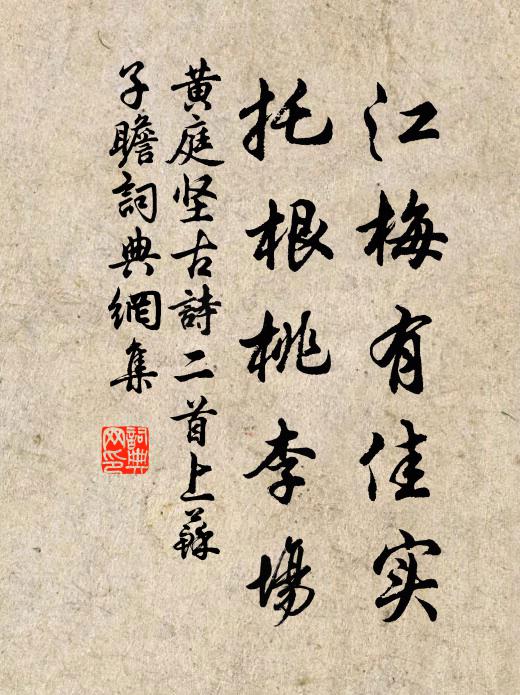 江梅有佳实
托根桃李場
黄庭坚古詩二首上蘇
子瞻詞典網集
詞典网印